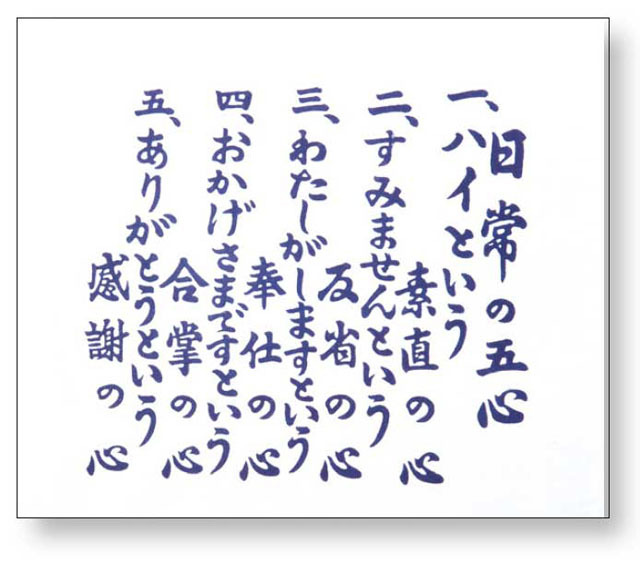 日常の五心
一、ハイという
素直の心
二、すみませんという
反省の心
三、わたしがしますという
奉仕の心
四、おかげさまですという
合掌の心
五、ありがとうという
感謝の心